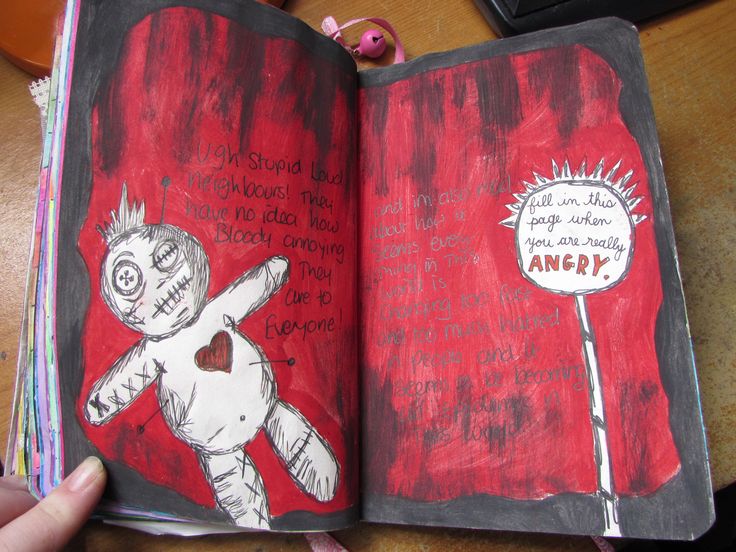 Ugh stupid loud
neighbours! They
have no idea how
Bloody annoying
They
are to
Everyone!
and im also mad
about how it
seems every
in This
world is
changing too fast
and too much hatred
in people and it
seems to be becoming
in
This world
fill in this
page when
you are really
ANGRY.